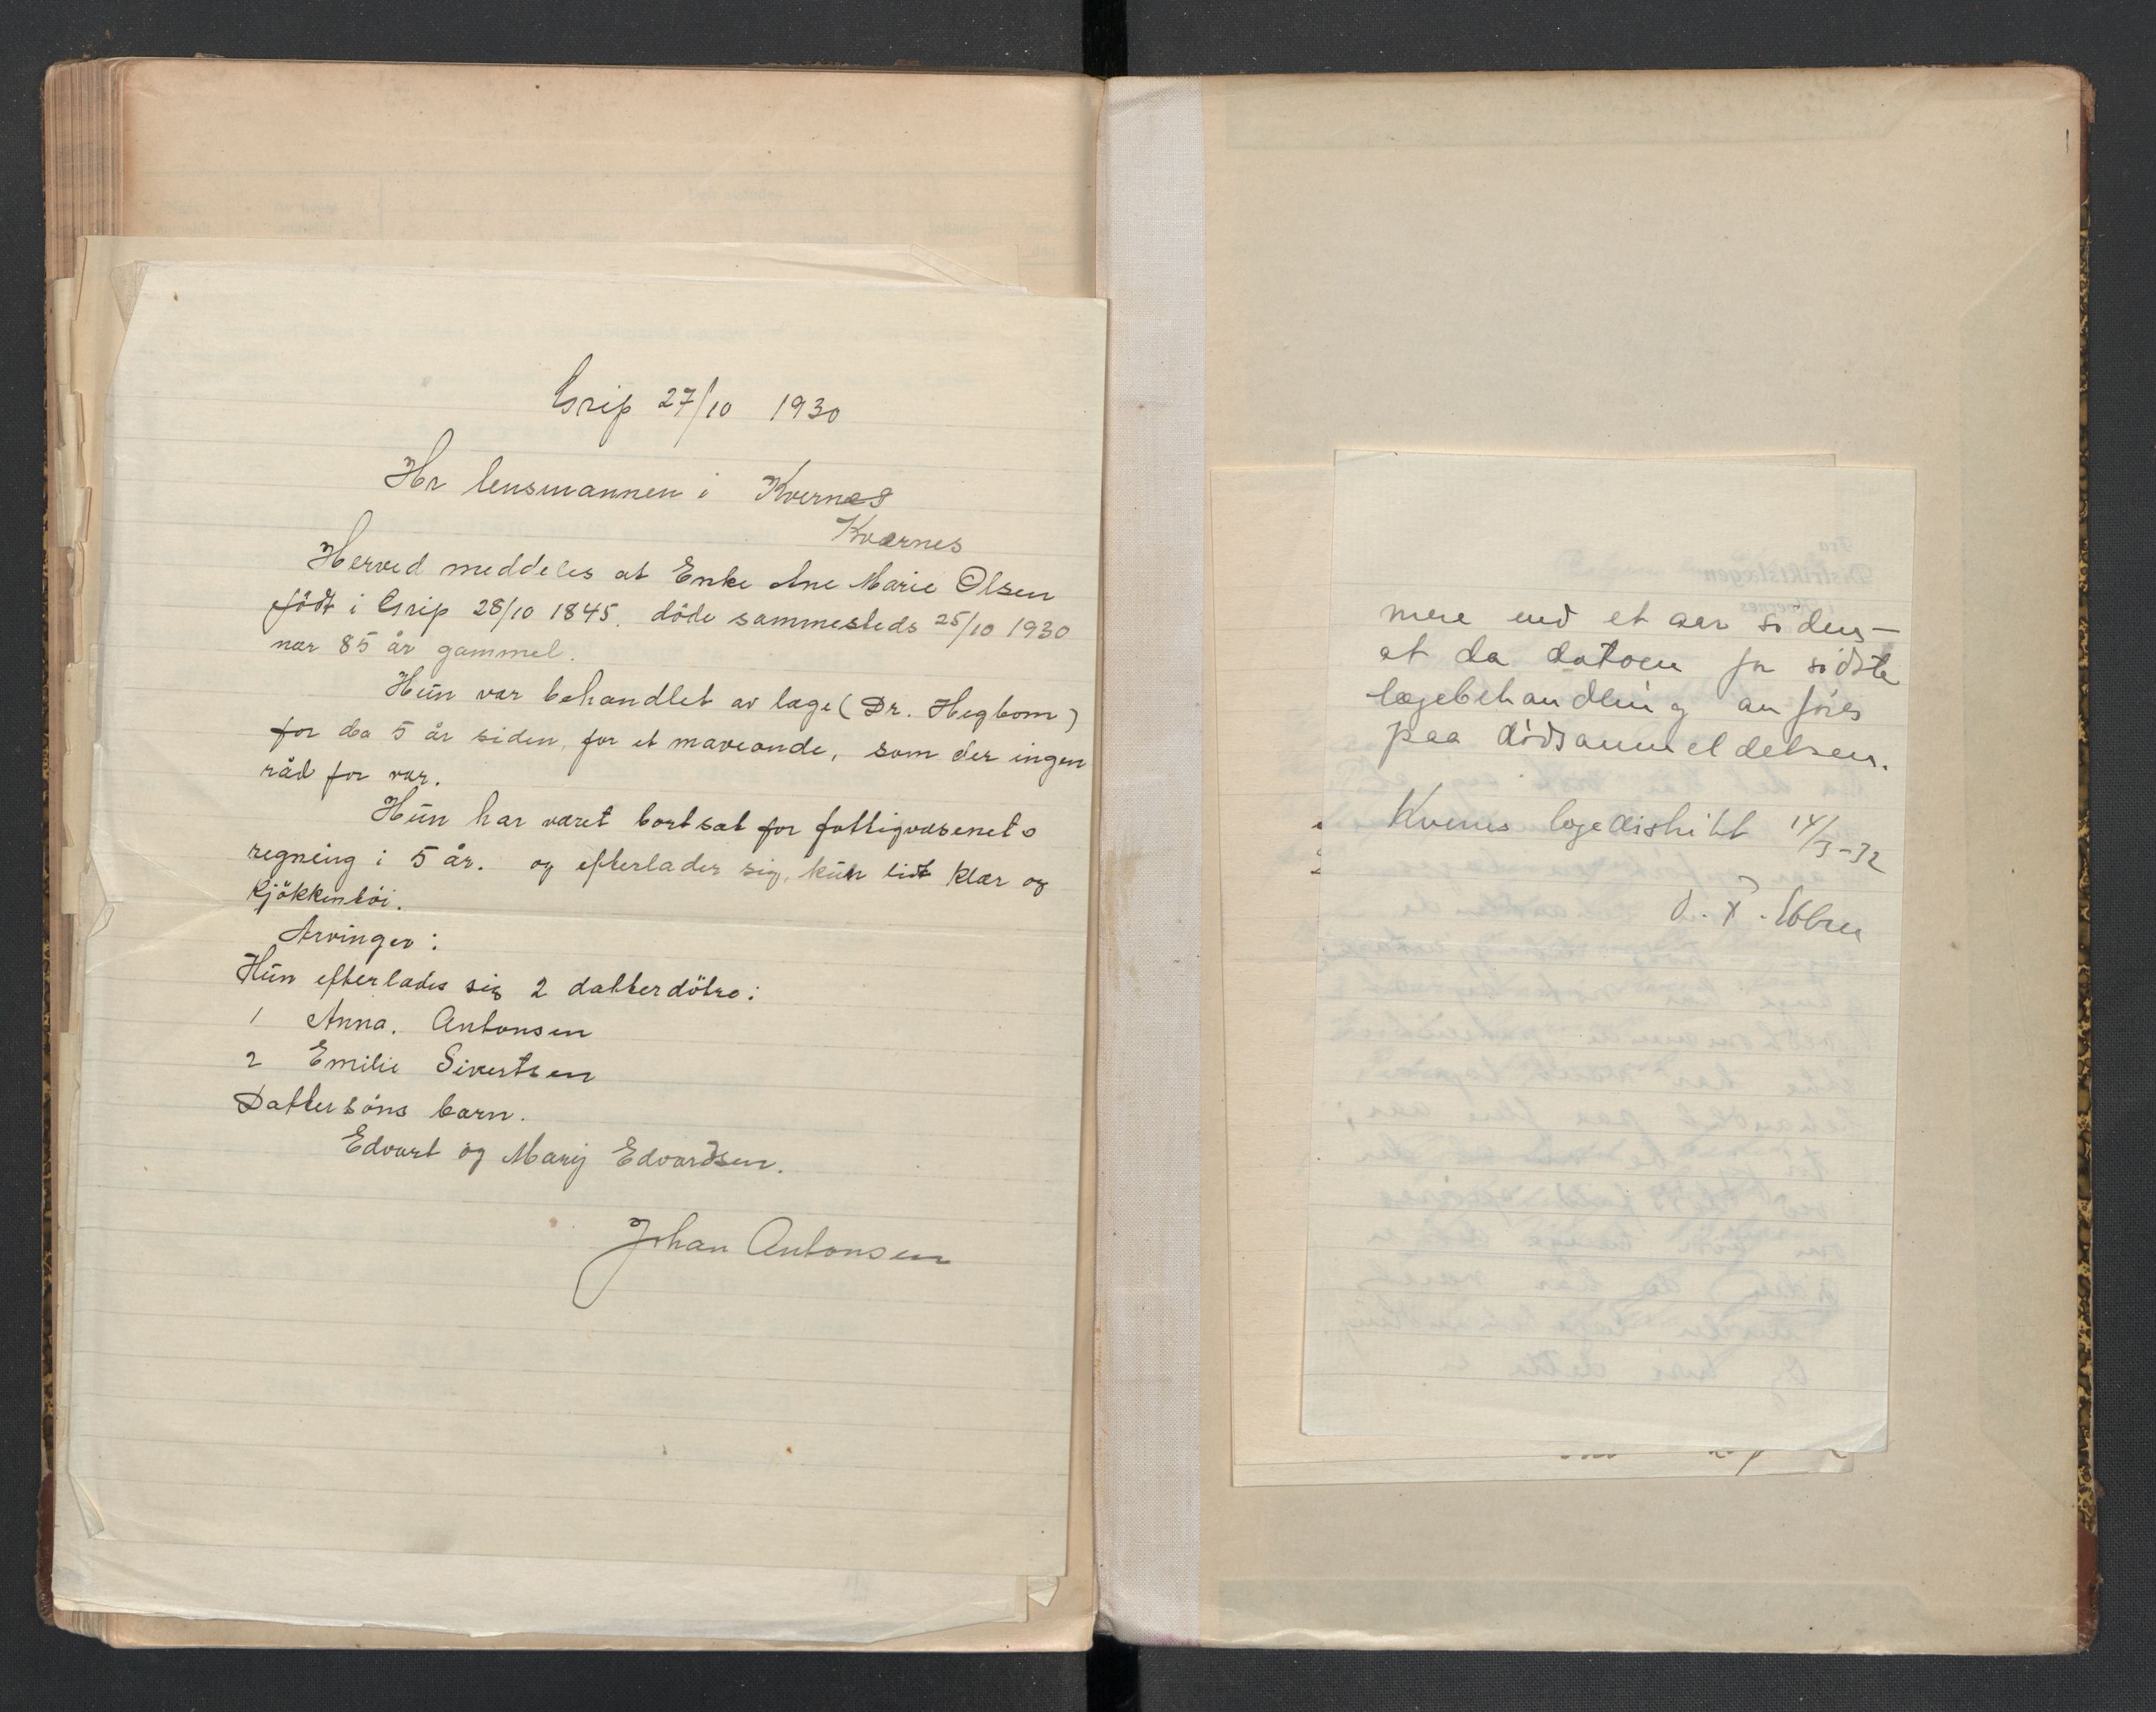 Grip 27/10 1930
Hr lensmannen i Kvernes
Kvernes
Herved meddeles at Enke Ane Marie Olsen
född i Grip 28/10 1845. döde sammesteds 25/10 1930
nær 85 år gammel.
Hun var behandlet av læge (Dr. Hegbom)
for da 5 år siden, for et maveonde, som der ingen
råd for var.
Hun har været bortsat for fattigvæsenets
regning i 5 år. og efterlader sig, kun lidt klær og
kjökkentöi.
Arvinger:
Hun efterlades sig 2 datterdötre:
1 Anna. Antonsen
2 Emilie Sivertsen
Dattersöns barn.
Edvart og Marij Edvardsen.
Johan Antonsen
Fra
Distriktslægen
i Kvernes
mere end et aar siden –
at da datoen for sidste
lægebehandling anföres
paa dödsanmeldelsen.
Kvernes lægedistrikt 14/3-32